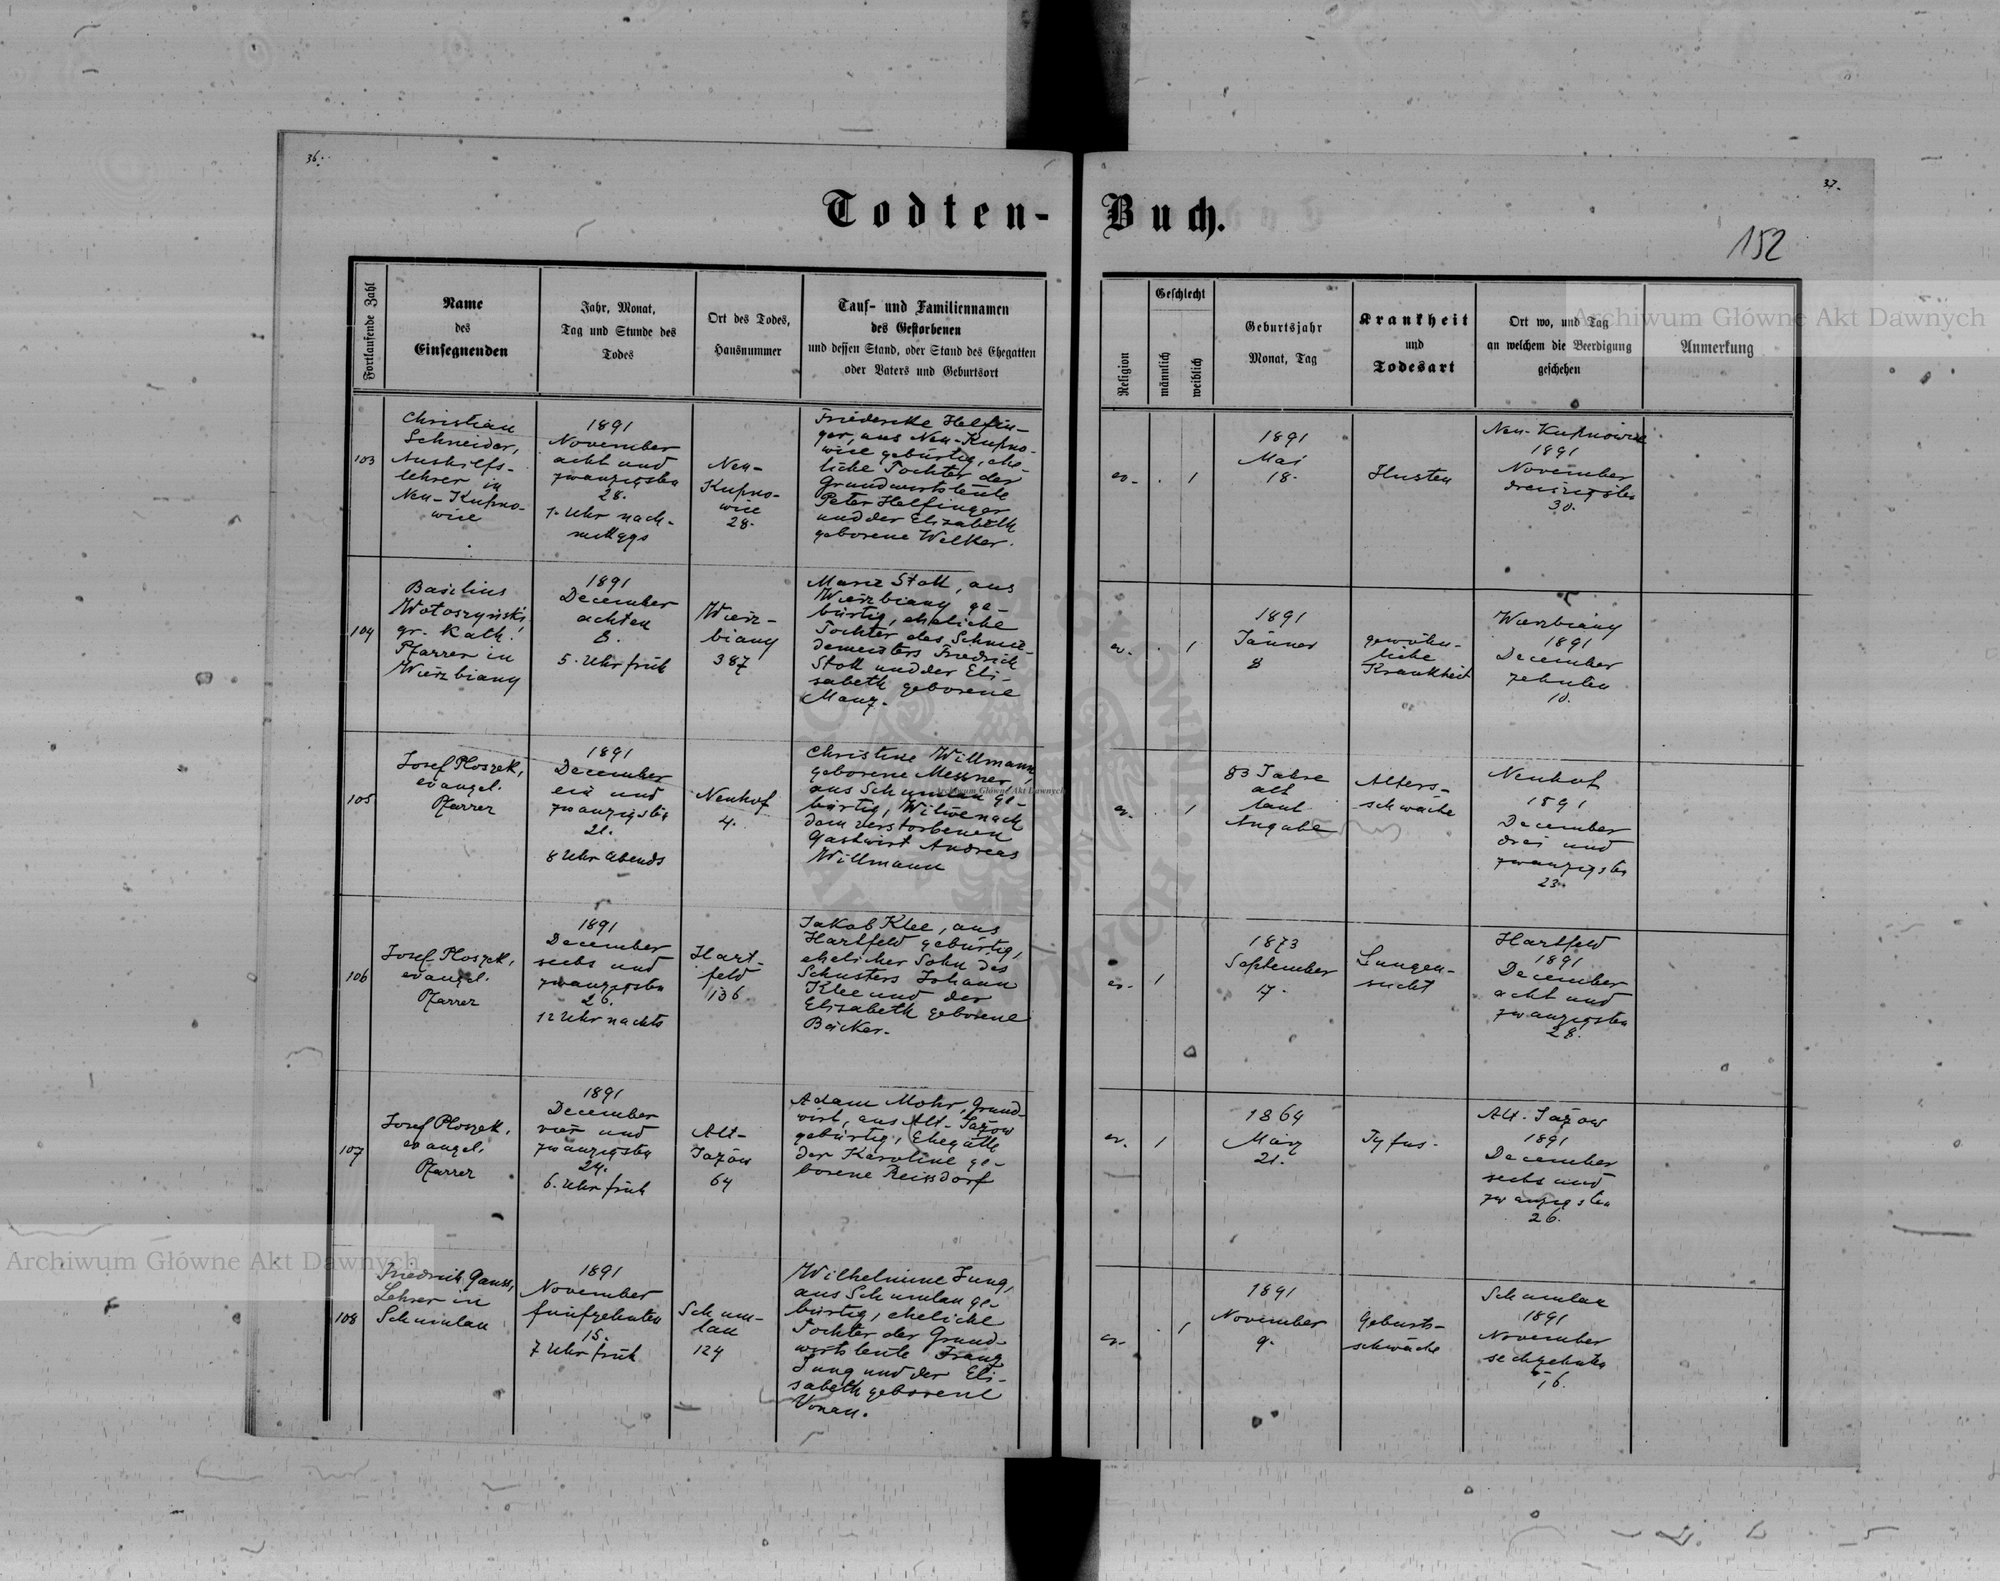 36.
37.
Todten-Buch.
152
Fortlaufende Zahl
Name
des
Einsegnenden
Jahr, Monat,
Tag und Stunde des
Todes
Ort des Todes,
Hausnummer
Tauf- und Familiennamen
des Gestorbenen
und dessen Stand, oder Stand des Ehegatten
oder Vaters und Geburtsort
Religion
Geschlecht
männlich
weiblich
Geburtsjahr
Monat, Tag
Krankheit
und
Todesart
Ort wo, und Tag
an welchem die Beerdigung
geschehen
Anmerkung
103
Christian
Schneider,
Aushilfs-
lehrer in
Neu-Kupno-
wice
1891
November
acht und
zwanzigsten
28.
1. Uhr nach-
mittags
Neu-
Kupno-
wice
28.
Friedericke Helfin-
ger, aus Neu-Kupno-
wice gebürtig, ehe-
liche Tochter der
Grundwirtsleute
Peter Helfinger
und der Elisabeth
geborene Welker.
ev.
.
1
1891
Mai
18.
Husten
Neu-Kupnowice
1891
November
dreissigsten
30.
104
Basilius
Wołoszyński
gr. kath.
Pfarrer in
Wierzbiany
1891
December
achten
8.
5. Uhr früh
Wierz-
biany
387
Marie Stoll, aus
Wierzbiany ge-
bürtig, eheliche
Tochter des Schmie-
demeisters Friedrich
Stoll und der Eli-
sabeth geborene
Manz.
ev.
.
1
1891
Jänner
8
gewöhn-
liche
Krankheit
Wierzbiany
1891
December
zehnten
10.
105
Josef Ploszek,
evangel.
Pfarrer
1891
December
ein und
zwanzigsten
21.
8 Uhr Abends
Neuhof
4.
Christine Willmann,
geborene Messner,
aus Schumlau ge-
bürtig, Witwe nach
dem verstorbenen
Gastwirt Andreas
Willmann
ev.
.
1
83 Jahre
alt
laut
Angabe
Alters-
schwäche
Neuhof
1891
December
drei und
zwanzigsten
23.
106
Josef Ploszek,
evangel.
Pfarrer
1891
December
sechs und
zwanzigsten
26.
12 Uhr nachts
Hart-
feld
136
Jakob Klee, aus
Hartfeld gebürtig,
ehelicher Sohn des
Schusters Johann
Klee und der
Elisabeth geborene
Bäcker.
ev.
1
1873
September
17.
Lungen-
sucht
Hartfeld
1891
December
acht und
zwanzigsten
28.
107
Josef Ploszek,
evangel.
Pfarrer
1891
December
vier und
zwanzigsten
24.
6. Uhr früh
Alt-
Jazów
64
Adam Mohr, Grund-
wirt, aus Alt-Jazow
gebürtig, Ehegatte
der Karoline ge-
borene Reissdorf
ev.
1
1864
März
21.
Tyfus.
Alt-Jazow
1891
December
sechs und
zwanzigsten
26.
108
Friedrich Gauss,
Lehrer in
Schumlau
1891
November
fünfzehnten
15.
7 Uhr früh
Schum-
lau
124
Wilhelmine Jung,
aus Schumlau ge-
bürtig, eheliche
Tochter der Grund-
wirtsleute Franz
Jung und der Eli-
sabeth geborene
Vonau.
ev.
.
1
1891
November
9.
Geburts-
schwäche
Schumlau
1891
November
sechzehnten
16.
Archiwum Główne Akt Dawnych
Archiwum Główne Akt Dawnych
Archiwum Główne Akt Dawnych